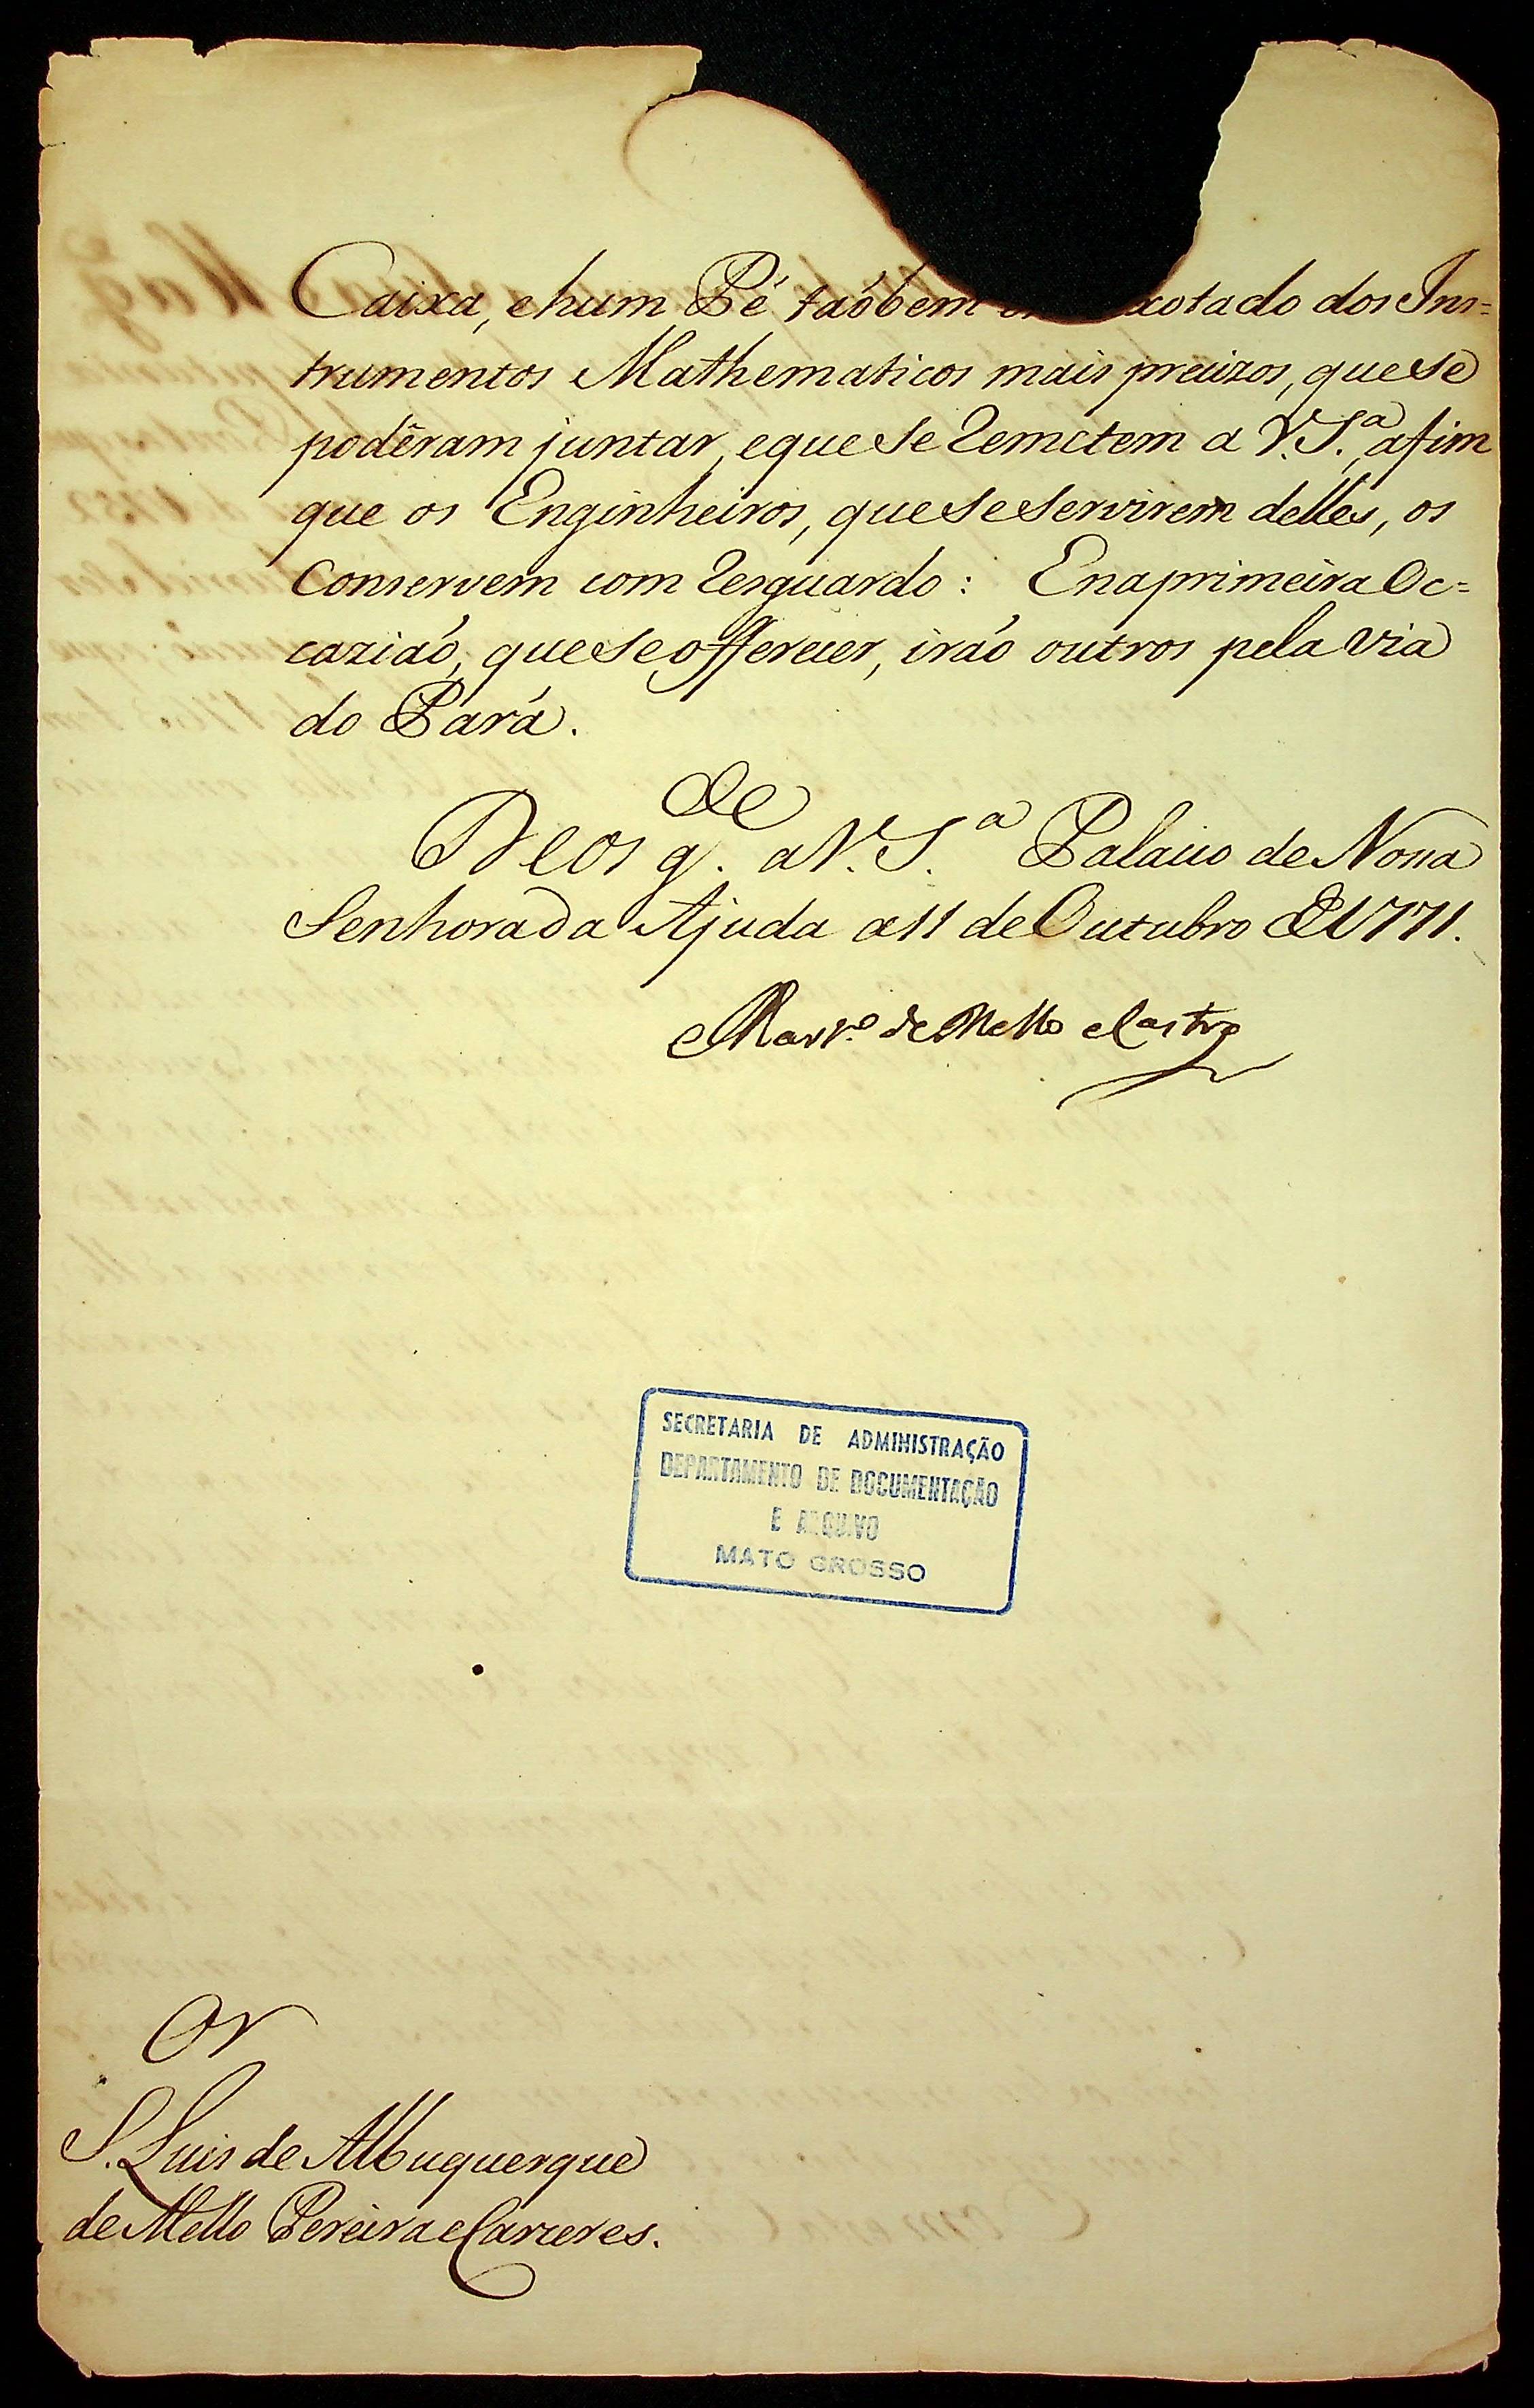 Caixa, e hum Pé taõbem acotado dos Ins=
trumentos Mathematicos mais precizos, que se
podêram juntar, e que se remetem a V. S.ª, afim
que os Enginheiros, que se servirem delles, os
Conservem com resguardo: E na primeira Oc=
caziaõ, que se offerecer, iráõ outros pela via
do Pará.
Deos g.de a V. S.ª Palacio de Nossa
Senhora da Ajuda a 11 de Outubro de 1771.
Mart.º de Mello e Castro
SECRETARIA DE ADMINISTRAÇÃO
DEPARTAMENTO DE DOCUMENTAÇÃO
E ARQUIVO
MATO GROSSO
S.r Luis de Albuquerque
de Mello Pereira e Carceres.